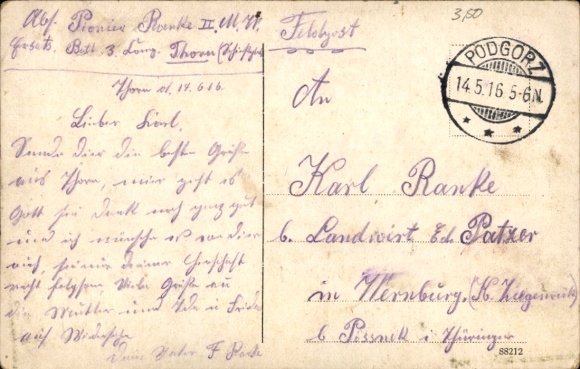 Abs. Pionier Ranke II. M. W.
Ersatz Batt 3. Komp. Thorn (Schießplatz)
Feldpost
3,50
PODGORZ
14.5.16 5-6N
Thorn d. 14.5.16.
Lieber Karl.
Sende dir die besten Grüße
aus Thorn, mir geht es
Gott sei dank noch ganz gut
und ich wünsche es von dir
auch, sei nur deiner Herrschaft
recht folgsam Viele Grüße an
die Mutter und Ida u Frieda
auf Wiedersehn
Dein Vater F Ranke
An
Karl Ranke
b. Landwirt Ed Patzer
in Wernburg (Kr. Ziegenrück)
b Pössnek i. Thüringen
88212